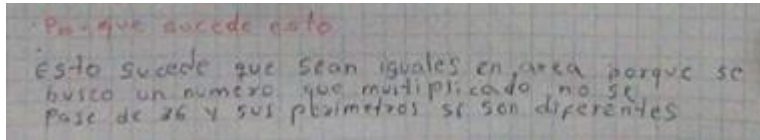 Por que sucede esto
esto sucede que sean iguales en area porque se
busco un numero que multiplicado no se
pase de 36 y sus perimetros si son diferentes